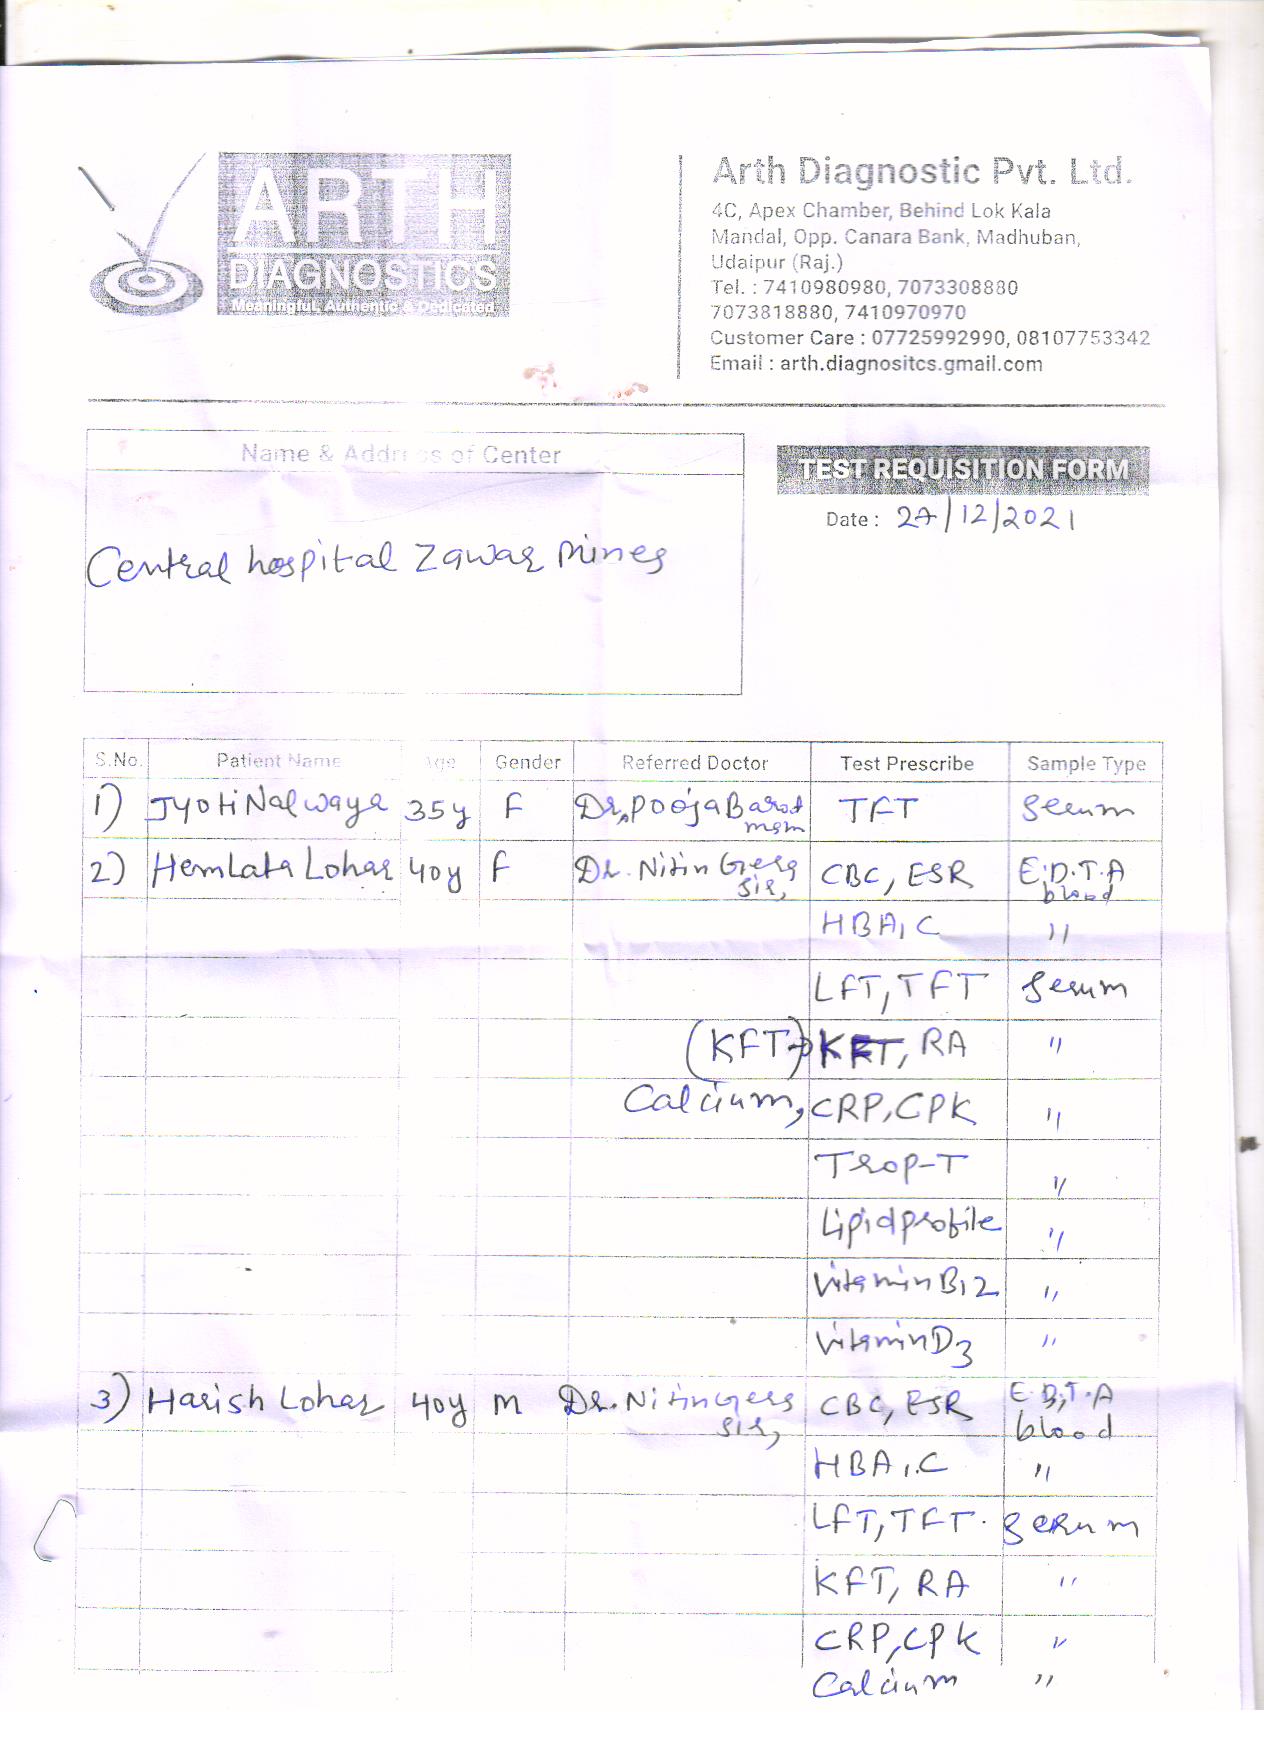 ARTH
DIAGNOSTICS
Meaningful, Authentic & Dedicated
Arth Diagnostic Pvt. Ltd.
4C, Apex Chamber, Behind Lok Kala
Mandal, Opp. Canara Bank, Madhuban,
Udaipur (Raj.)
Tel. : 7410980980, 7073308880
7073818880, 7410970970
Customer Care : 07725992990, 08107753342
Email : arth.diagnositcs.gmail.com
Name & Address of Center
TEST REQUISITION FORM
Date : 27/12/2021
Central hospital Zawar mines
S.No. Patient Name Age Gender Referred Doctor Test Prescribe Sample Type
1) Jyoti Nalwaya 35y F Dr, Pooja Barot mgm TFT Serum
2) Hemlata Lohar 40y F Dr. Nitin sir, CBC, ESR E.D.T.A blood
HBA1C "
LFT, TFT Serum
(KFT) KFT, RA "
Calcium, CRP, CPK "
Trop-T "
Lipid profile "
Vitamin B12 "
Vitamin D3 "
3) Harish Lohar 40y M Dr. Nitin sir, CBC, ESR E.D.T.A blood
HBA1.C "
LFT, TFT. Serum
KFT, RA "
CRP, CPK "
Calcium "